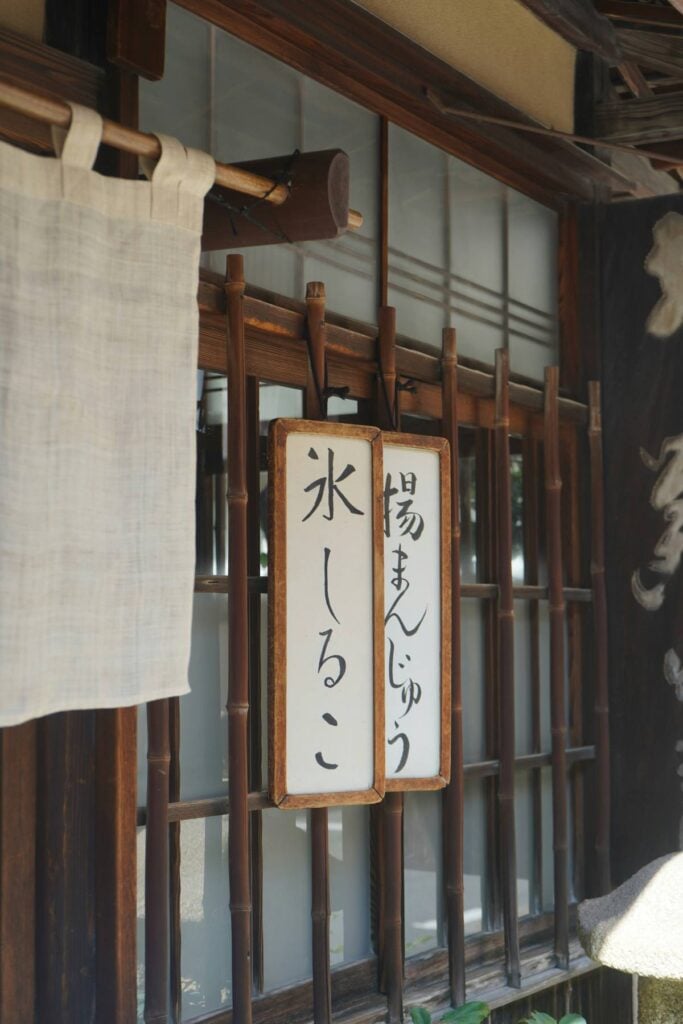 揚まんじゅう
氷しるこ